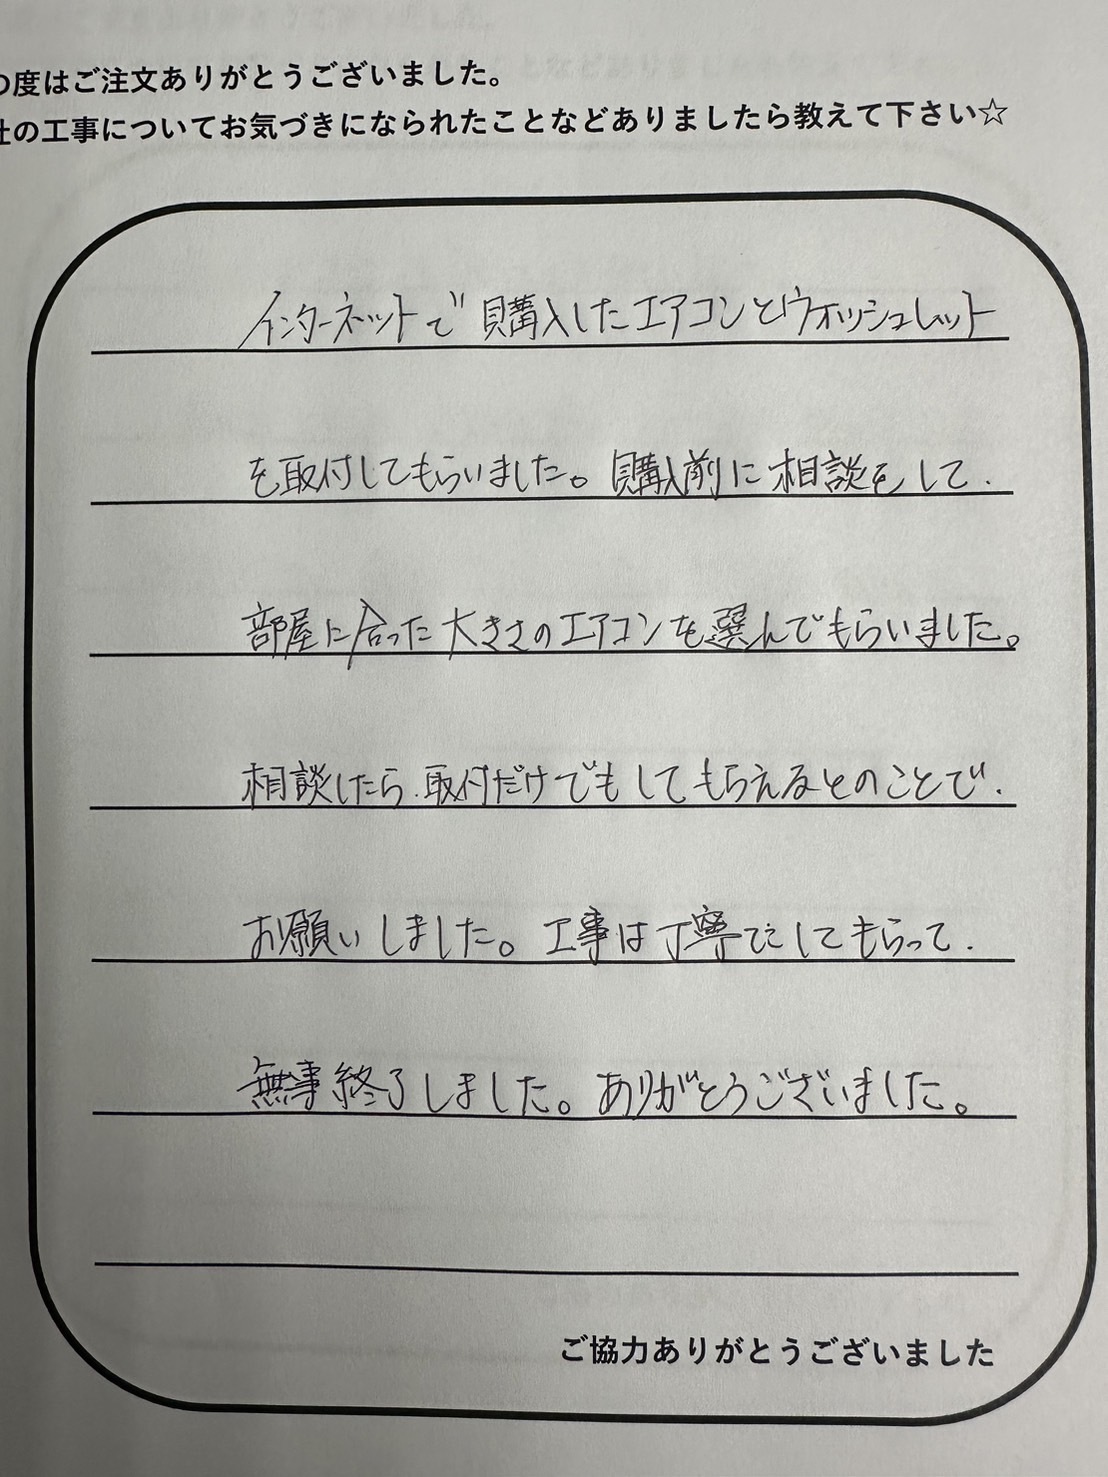 の度はご注文ありがとうございました。
社の工事についてお気づきになられたことなどありましたら教えて下さい☆
インターネットで購入したエアコンとウォッシュレット
を取付してもらいました。購入前に相談をして、
部屋に合った大きさのエアコンを選んでもらいました。
相談したら、取付だけでもしてもらえるとのことで、
お願いしました。工事は丁寧にしてもらって、
無事終了しました。ありがとうございました。
ご協力ありがとうございました